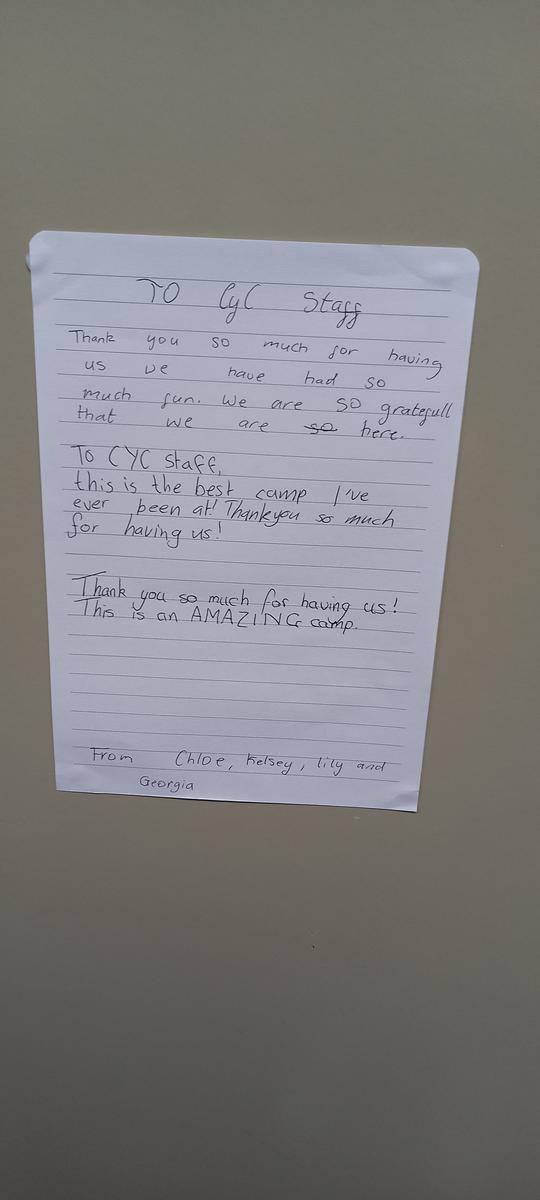 TO CYC Staff
Thank you so much for having
us we have had so
much fun. We are SO gratefull
that we are so here.
To CYC staff,
this is the best camp I've
ever been at! Thankyou so much
for having us!
Thank you so much for having us!
This is an AMAZING camp.
From Chloe, Kelsey, lily and
Georgia